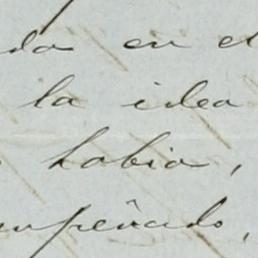 da en el
la idea
habia,
empeñado,